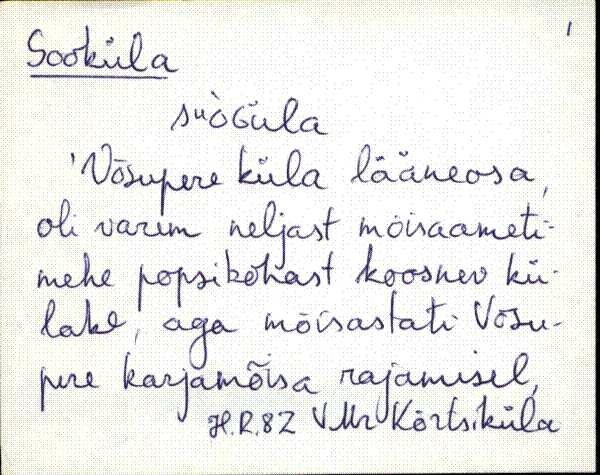 1
Sooküla
suòGüla
'Võsupere küla lääneosa,
oli varem neljast mõisaameti-
mehe popsikohast koosnev kü-
lake, aga mõisastati Võsu-
pere karjamõisa rajamisel,
H.R.82 VMr Kõrtsiküla